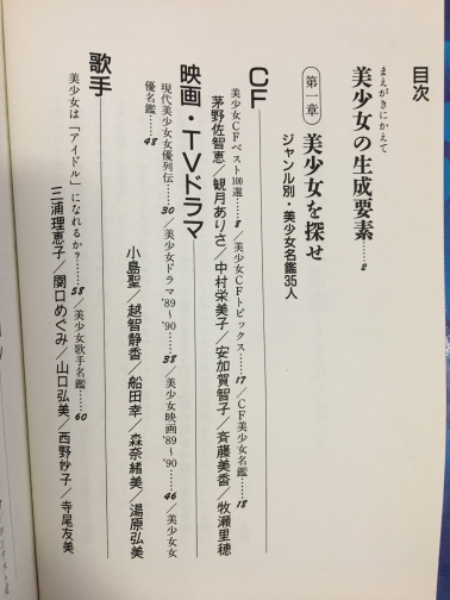 目次
まえがきにかえて
美少女の生成要素……2
第一章 美少女を探せ
ジャンル別・美少女名鑑35人
CF
美少女CFベスト100選……8/美少女CFトピックス……17/CF美少女名鑑……18
茅野佐智恵/観月ありさ/中村栄美子/安加賀智子/斉藤美香/牧瀬里穂
映画・TVドラマ
現代美少女女優列伝……30/美少女ドラマ'89〜'90……38/美少女映画'89〜'90……46/美少女女
優名鑑……48
小島聖/越智静香/船田幸/森奈緒美/湯原弘美
歌手
美少女は「アイドル」になれるか?……58/美少女歌手名鑑……60
三浦理恵子/関口めぐみ/山口弘美/西野妙子/寺尾友美